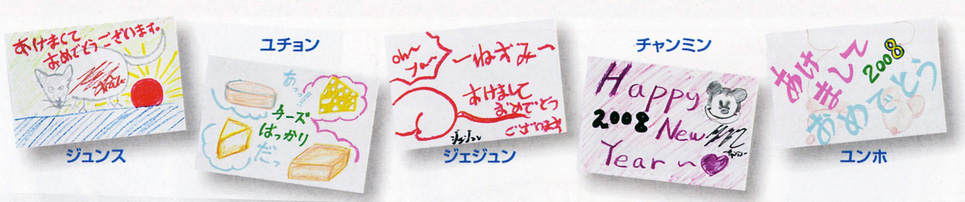 あけまくて
おめでとうございます。
ジュンス
ユチョン
あっ!!
チーズ
ばっかり
だっ
oh~
~ねずみ~
あけまして
おめでとう
ございます
ジェジュン
ジェジュン
チャンミン
Happy
2008 New
Year~
あけ
まして
2008
おめでとう
ユンホ